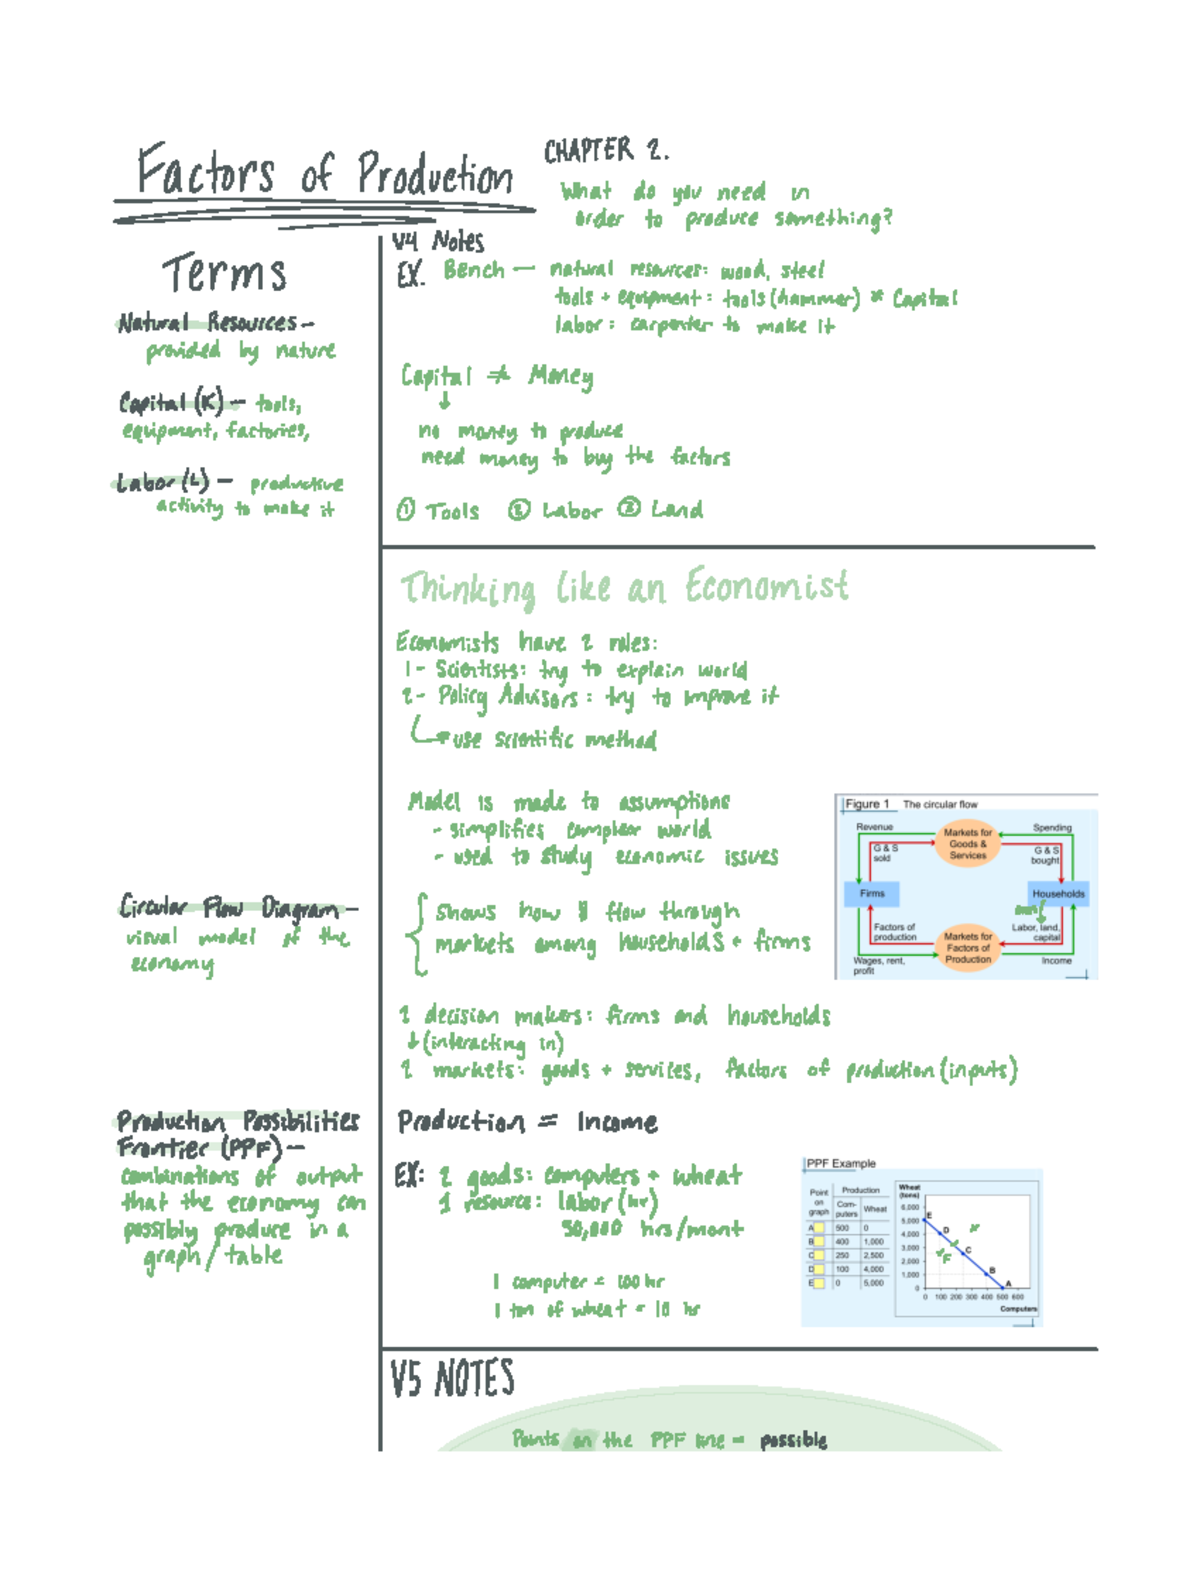 Factors of Production
CHAPTER 2.
What do you need in
order to produce something?
Terms
Natural Resources-
provided by nature
Capital (K) - tools,
equipment, factories,
Labor (L) - productive
activity to make it
V4 Notes
EX. Bench - natural resources: wood, steel
tools + equipment: tools (hammer) * Capital
labor: carpenter to make it
Capital ≠ Money
↓
no money to produce
need money to buy the factors
① Tools ② Labor ③ Land
Thinking like an Economist
Economists have 2 roles:
1- Scientists: try to explain world
2- Policy Advisors: try to improve it
use scientific method
Model is made to assumptions
- simplifies complex world
- used to study economic issues
Circular Flow Diagram-
visual model of the
economy
shows how $ flow through
markets among households + firms
Figure 1 The circular flow
Revenue
Markets for
Goods &
Services
Spending
G & S
sold
G & S
bought
Firms
Households
Factors of
production
Markets for
Factors of
Production
Labor, land,
capital
Wages, rent,
profit
Income
2 decision makers: firms and households
↓ (interacting in)
2 markets: goods + services, factors of production (inputs)
Production Possibilities
Frontier (PPF)-
combinations of output
that the economy can
possibly produce in a
graph / table
Production = Income
EX: 2 goods: computers + wheat
1 resource: labor (hr)
50,000 hrs/mont
1 computer = 100 hr
1 ton of wheat = 10 hr
PPF Example
Point
on
graph
Production
Com-
puters
Wheat
A 500 0
B 400 1,000
C 250 2,500
D 100 4,000
E 0 5,000
Wheat
(tons)
6,000
5,000
4,000
3,000
2,000
1,000
0
E
D
C
B
A
F
0 100 200 300 400 500 600
Computers
V5 NOTES
Points on the PPF line - possible